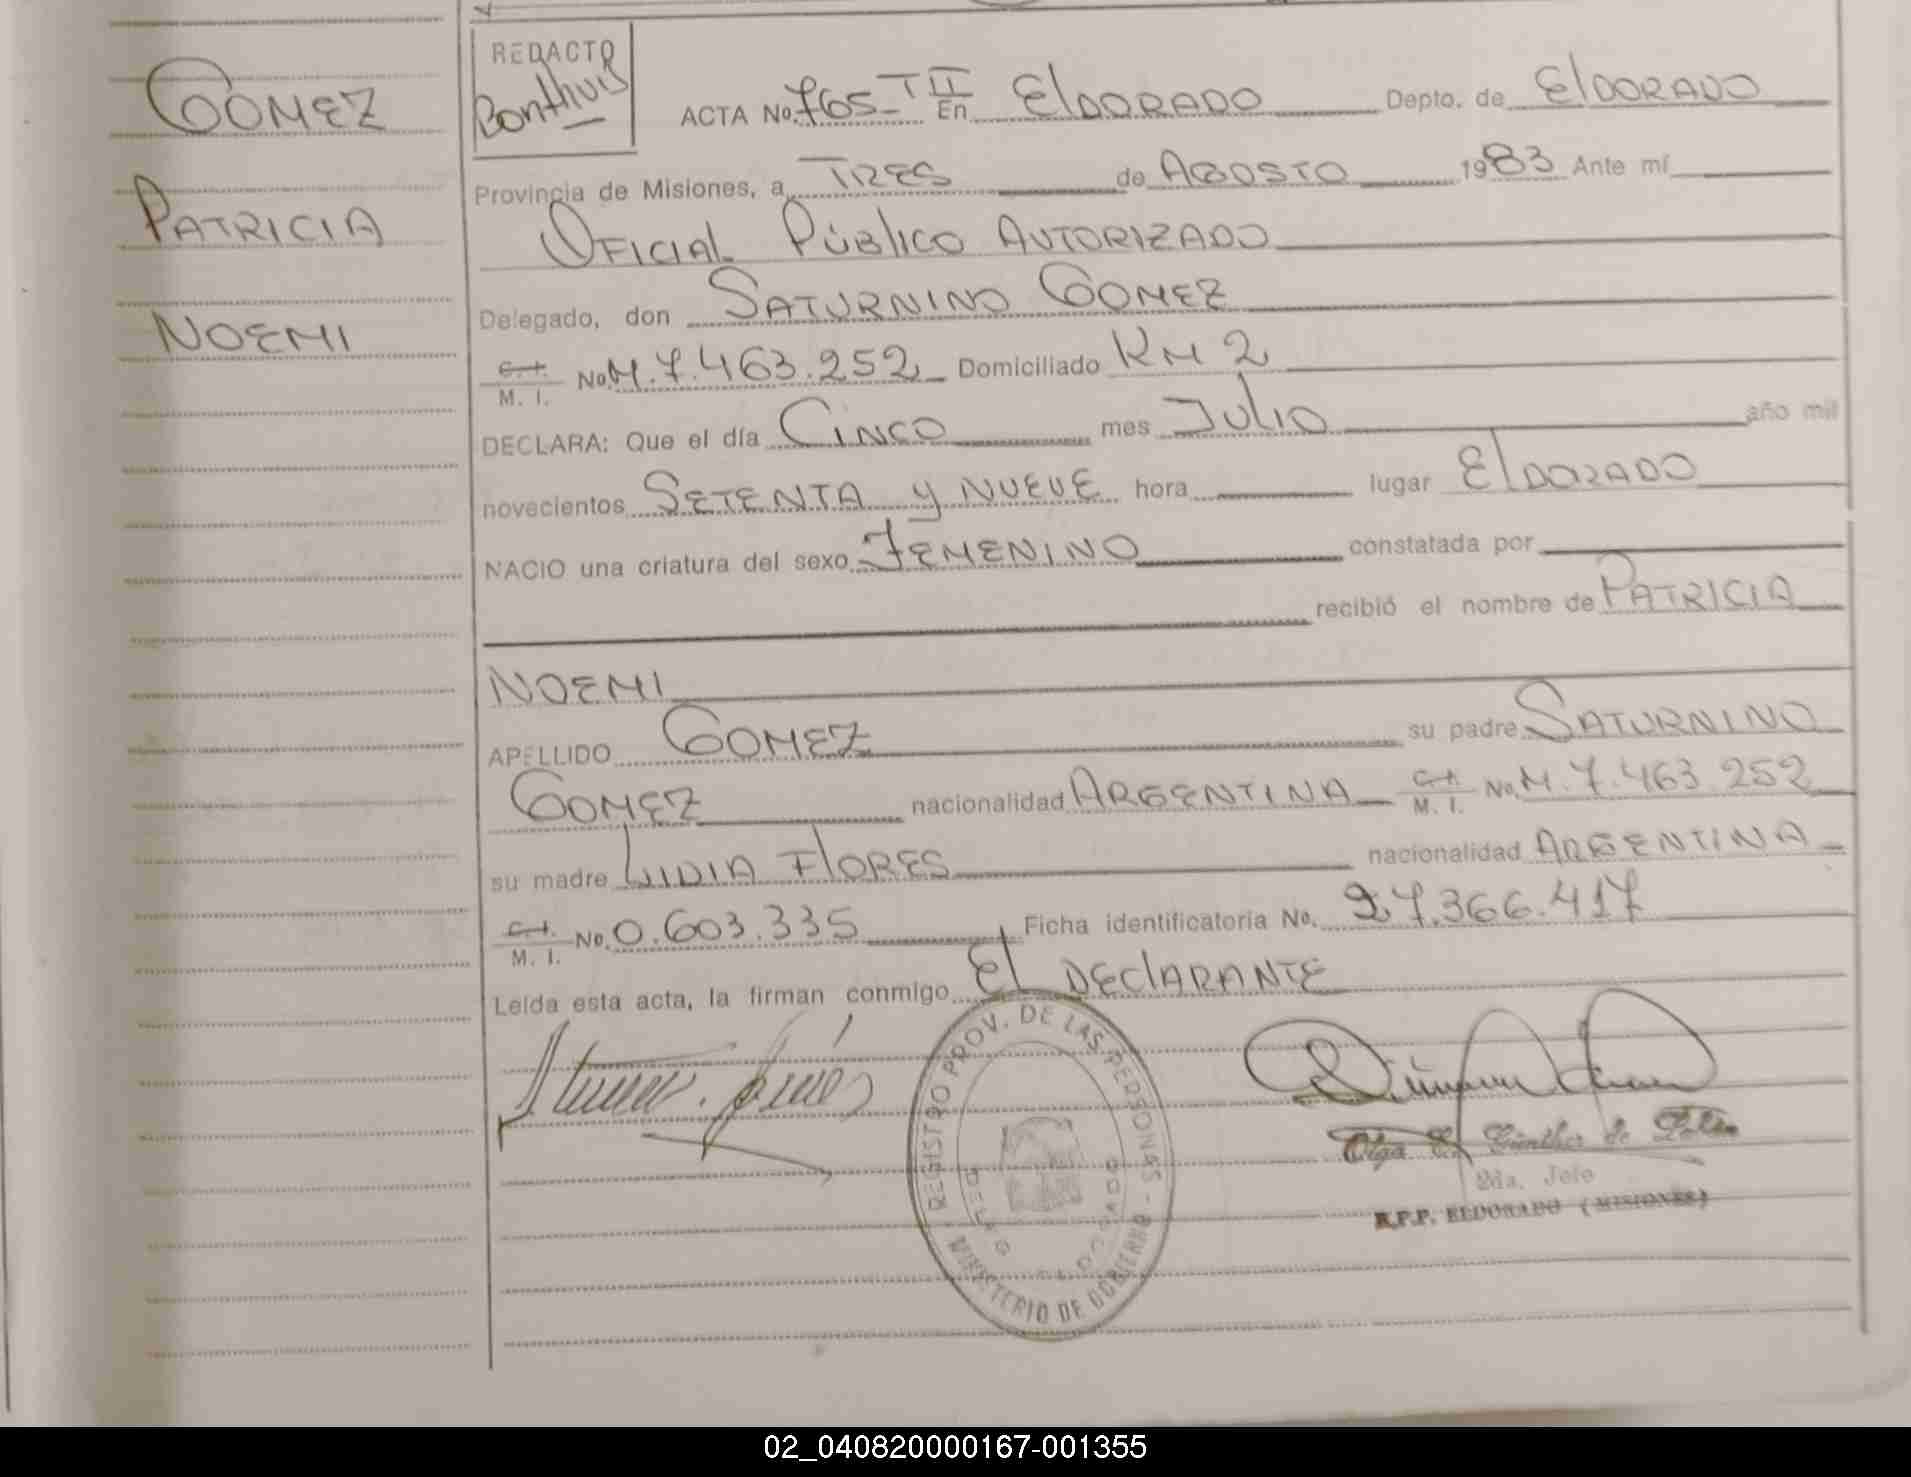 GOMEZ
PATRICIA
NOEMI
REDACTO
Bonthuis
ACTA No. 765 - T II En ElDORADO Depto. de ElDORADO
Provincia de Misiones, a TRES de AGOSTO 1983 Ante mí
OFICIAL PÚBlICO AUTORIZADO
Delegado, don SATURNINO GOMEZ
C.I. M. I. No. M. 7.463.252 Domiciliado KM 2
DECLARA: Que el día CINCO mes JULIO año mil
novecientos SETENTA y NUEVE hora lugar ElDORADO
NACIO una criatura del sexo FEMENINO constatada por
recibió el nombre de PATRICIA
NOEMI
APELLIDO GOMEZ su padre SATURNINO
GOMEZ nacionalidad ARGENTINA C.I. M. I. No. M. 7.463.252
su madre LIDIA FlORES nacionalidad ARGENTINA
C.I. M. I. No. 0.603.335 Ficha identificatoria No. 27.366.417
Leída esta acta, la firman conmigo El DEClARANTE
REGISTRO PROV. DE LAS PERSONAS - MINISTERIO DE GOBIERNO
Olga E. Günther de
2da. Jefe
R.P.P. ELDORADO (MISIONES)
02_040820000167-001355